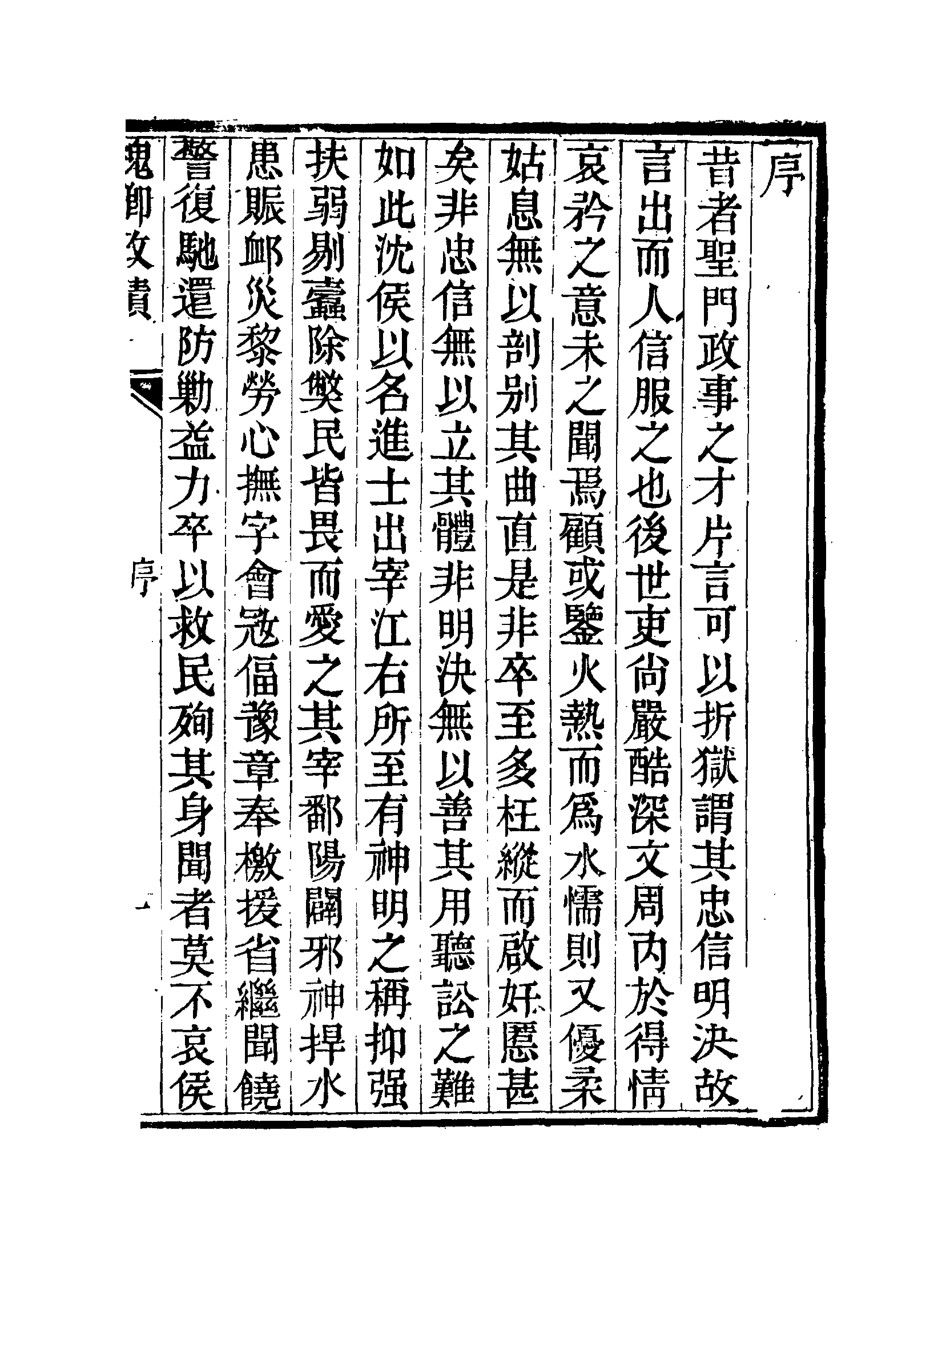 序
昔者聖門政事之才片言可以折獄謂其忠信明決故
言出而人信服之也後世吏尚嚴酷深文周内於得情
哀矜之意未之聞焉顧或鑒火熱而爲水懦則又優柔
姑息無以剖别其曲直是非卒至多枉縱而啟奸慝甚
矣非忠信無以立其體非明決無以善其用聽訟之難
如此沈侯以名進士出宰江右所至有神明之稱抑强
扶弱剔蠹除獘民皆畏而愛之其宰鄱陽闢邪神捍水
患賑卹災黎勞心撫字會冦偪豫章奉檄援省繼聞饒
警復馳還防勦益力卒以救民殉其身聞者莫不哀侯
槐卿政蹟
序
一